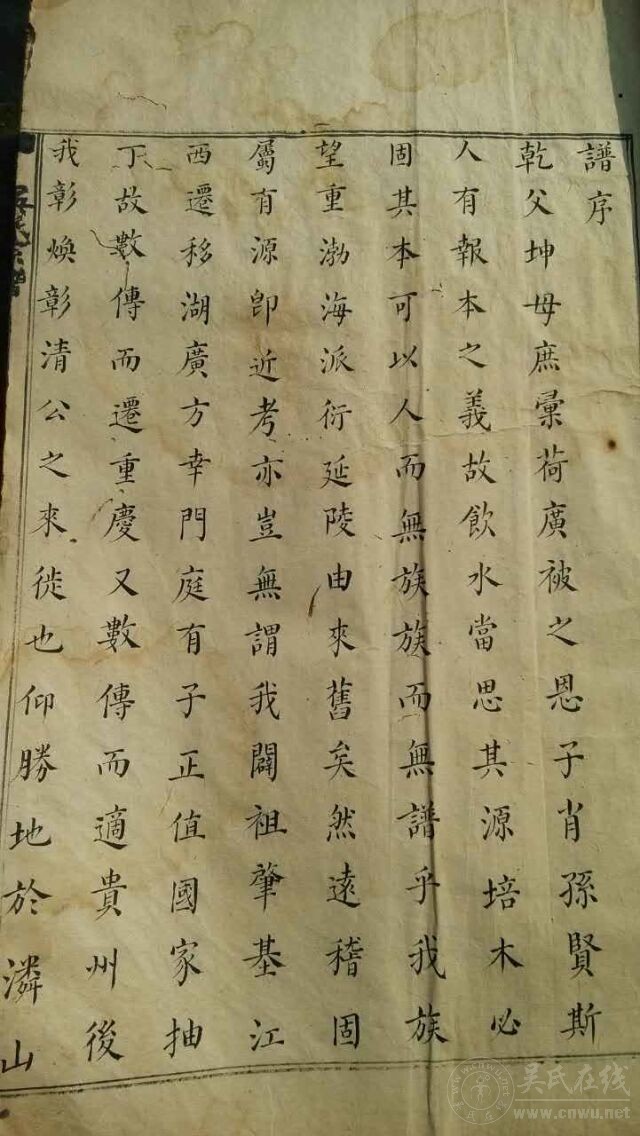 譜序
乾父坤母庶彙荷廣被之恩子肖孫賢斯
人有報本之義故飲水當思其源培木必
固其本可以人而無族族而無譜乎我族
望重渤海派衍延陵由來舊矣然遠稽固
屬有源卽近考亦豈無謂我闢祖肇基江
西遷移湖廣方幸門庭有子正值國家抽
丁故數傳而遷重慶又數傳而適貴州後
我彰煥彰清公之來徙也仰勝地於潾山
吳氏在线
www.cnwu.net